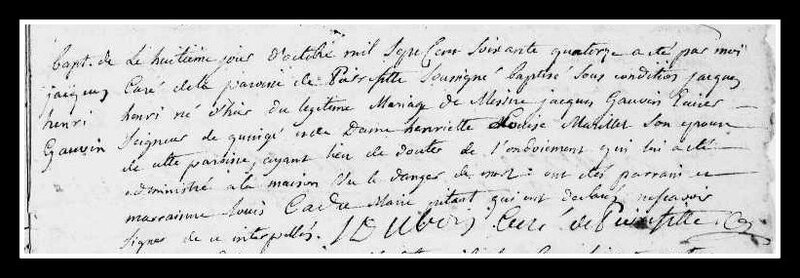 bapt. de
jacques
henri
Gauvin
Le huitième jour d'octobre mil sept cent soixante quatorze a été par moi
Curé de la paroisse de soussigné baptisé sous condition jacques
henri né d'hier du legitime Mariage de Messire jacques Gauvin Ecuier
Seigneur de et de Dame henriette Louise Marillet son epouse
de cette paroisse, ayant lieu de douter de l'ondoiement qui lui a été
administré à la maison vu le danger de mort : ont été parrain et
marraine Louis Cadre Marie pitaut qui ont declaré ne scavoir
signer de ce interpellés. Curé de